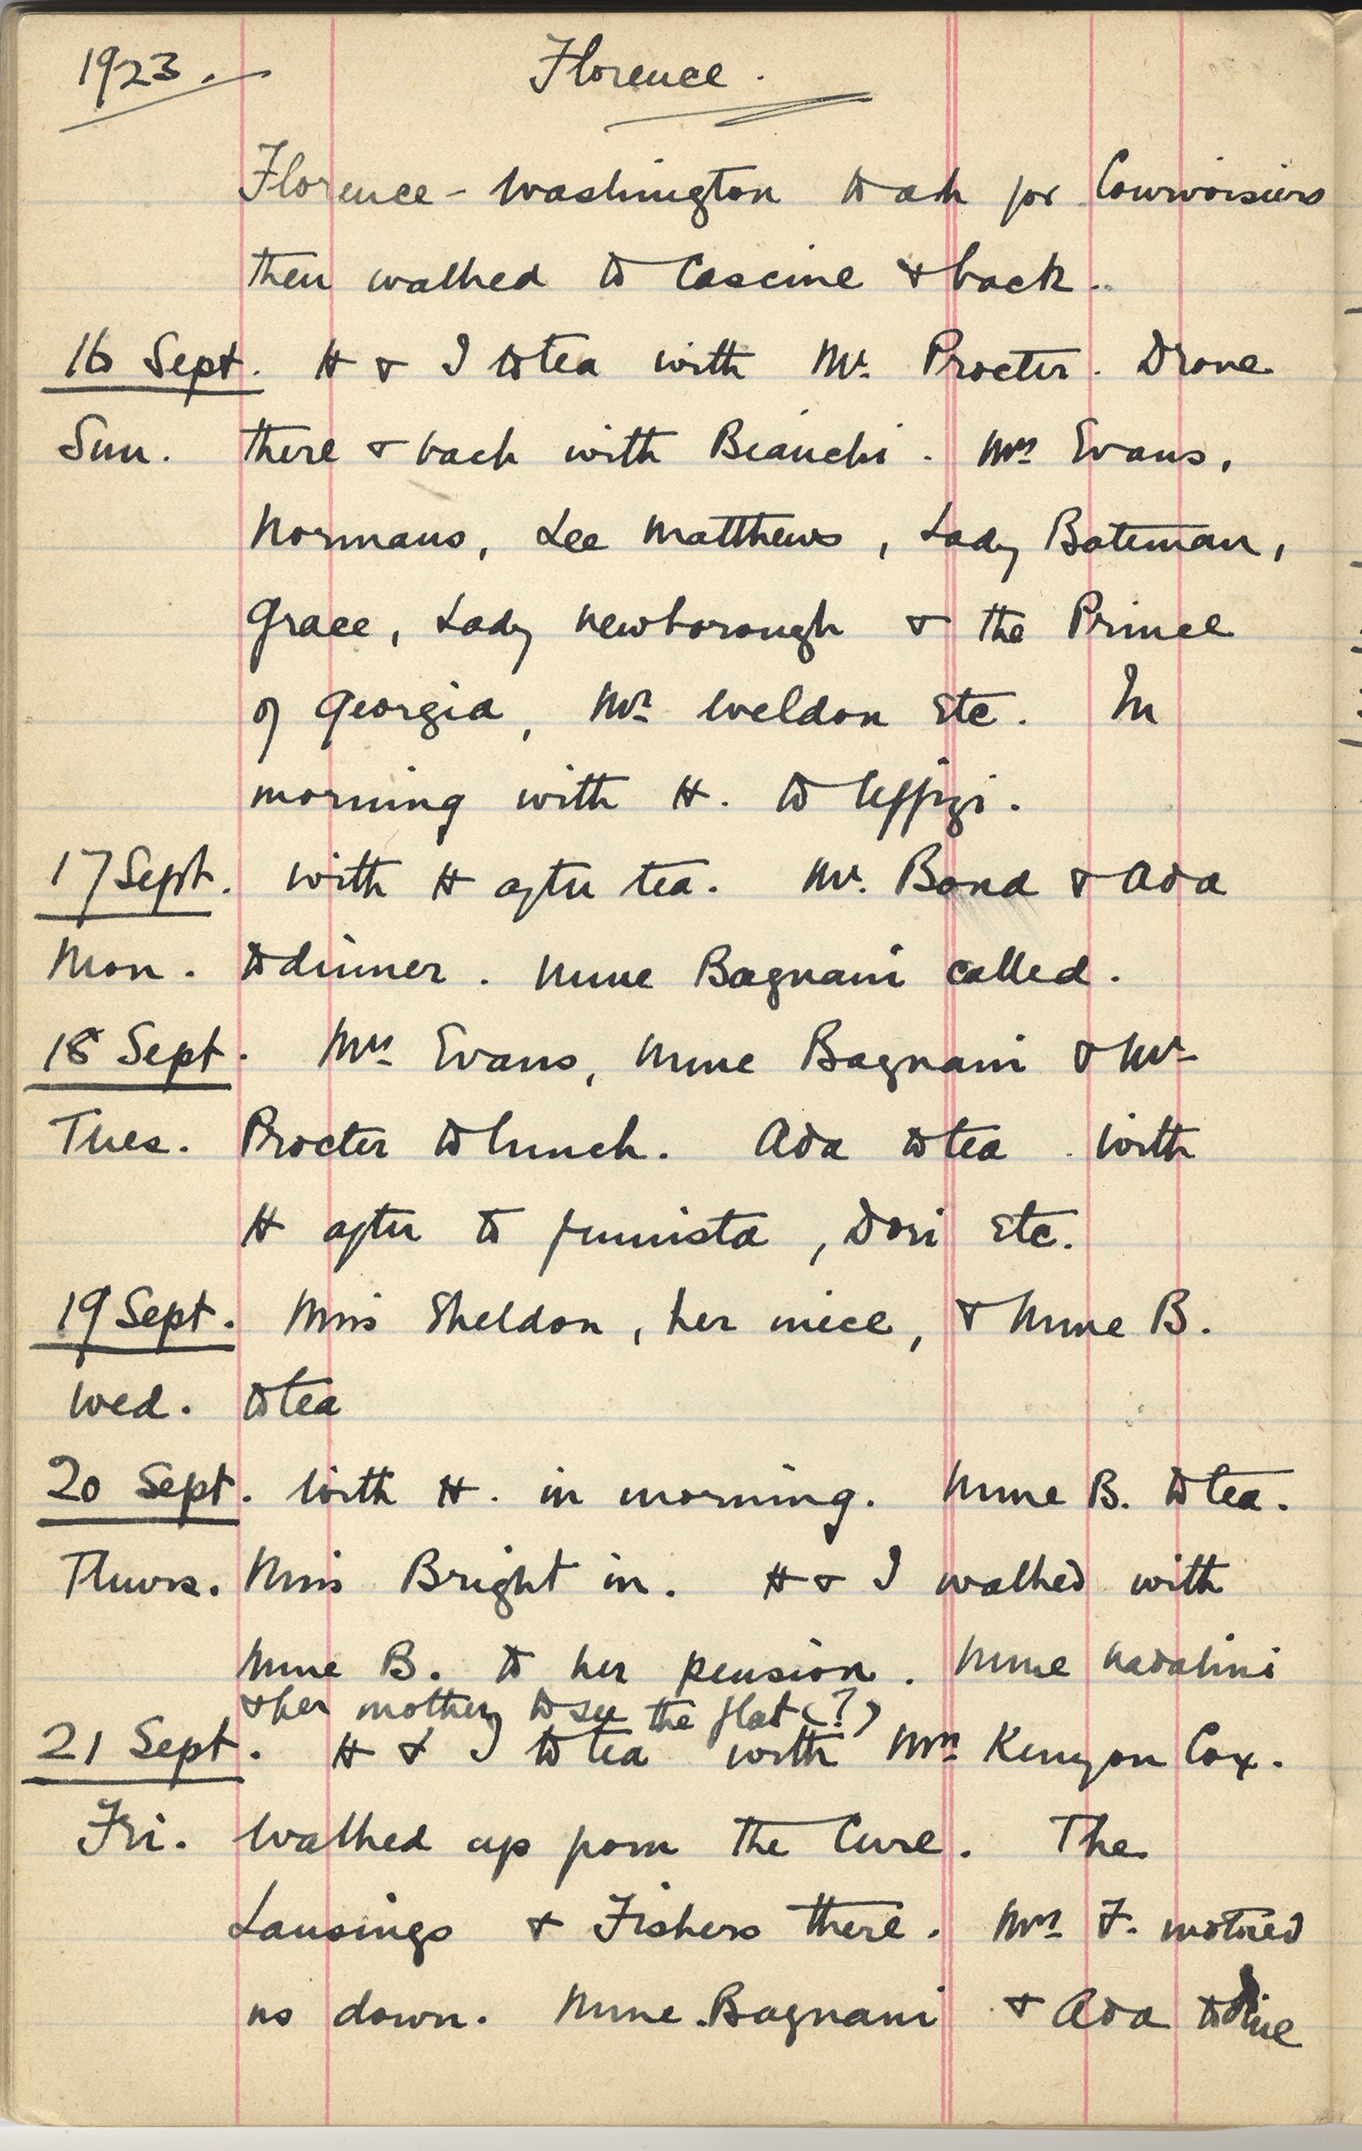 1923. Florence.
Florence-Washington to ask for Courvoisiers
then walked to Cascine & back.
16 Sept. H & I to tea with Mr. Procter. Drove
Sun. there & back with Bianchi. Mrs Evans,
Normans, Lee Matthews, Lady Bateman,
Grace, Lady Newborough & the Prince
of Georgia, Mrs Weldon etc. In
morning with H. to Uffizi.
17 Sept. With H after tea. Mr. Bond & Ada
Mon. to dinner. Mme Bagnani called.
18 Sept. Mrs Evans, Mme Bagnani & Mr
Tues. Procter to lunch. Ada to tea. With
H after to fumista, Dori etc.
19 Sept. Miss Sheldon, her niece, & Mme B.
Wed. to tea
20 Sept. With H. in morning. Mme B. to tea.
Thurs. Miss Bright in. H & I walked with
Mme B. to her pension. Mme Nadalini
& her mother to see the flat (?)
21 Sept. H & I to tea with Mrs Kenyon Cox.
Fri. Walked up from the Cure. The
Lansings & Fishers there. Mrs F. motored
us down. Mme Bagnani & Ada to dine